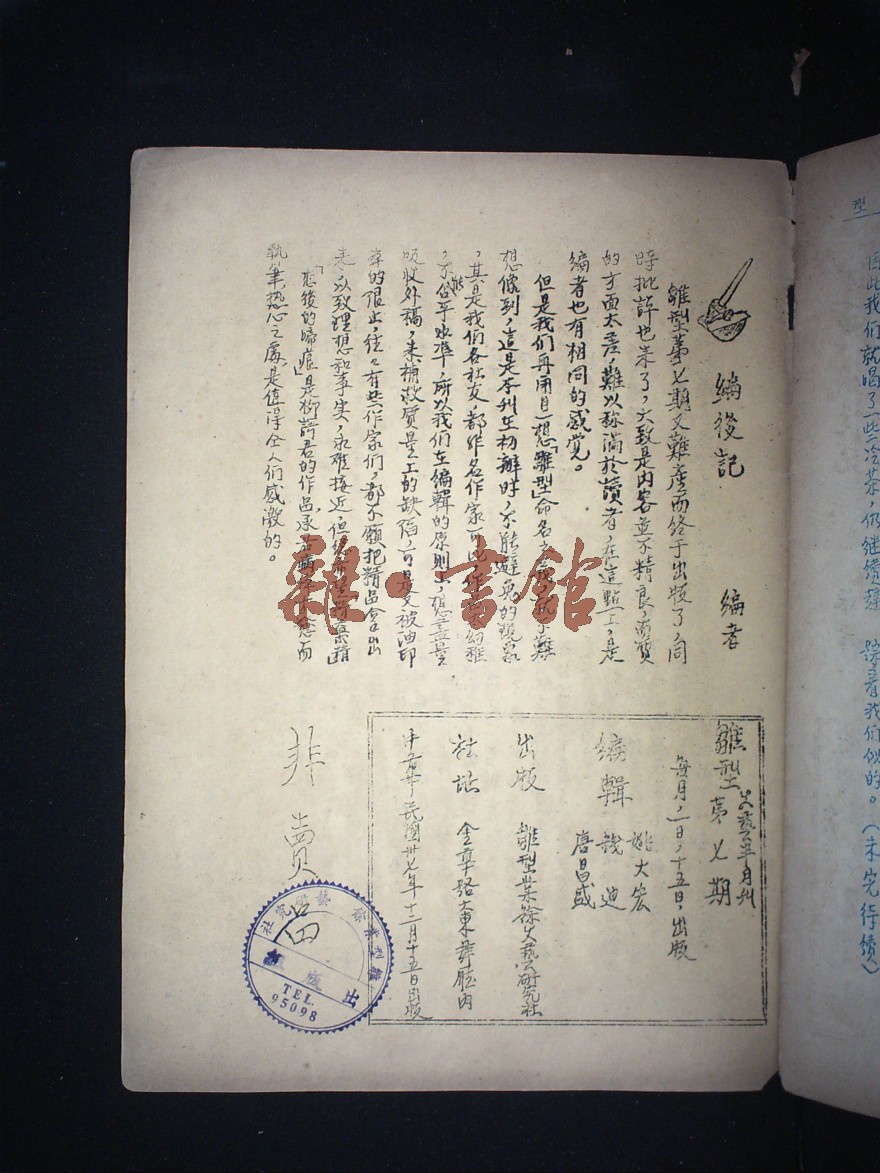 編後記
編者
雛型第七期又難產而終于出版了,同
時批評也來了,大致是內容並不精良,而質
的方面太差,難以称滿於讀者,在這點上,是
編者也有相同的感覚。
但是我們再用目一想「雛型」命名
想像到,這是本刊在初辦時,不能避免的現象
,其是我們各社友都非名作家,可
,不能合乎水準,所以我們在編輯的原則上,想盡量
吸收外稿,來補救質量上的缺陷,可是又被油印
的限止,往々有些作家們,都不願把精品拿出
來,以致理想和事实,永难接近,但
「悲後的啼痕」是柳諝君的作品,承 而
執筆,熱心之處,是值得仝人們感激的。
文藝半月刊
雛型第七期
每月,一日,十五日,出版
編輯
姚大宏
錢迪
唐昌盛
出版
雛型業餘文藝研究社
社址
金華路大東舞廳內
民國卅七年十二月十五日出版
非賣品
雛型業餘文藝研究社
出版
TEL.
95098
型
因此我們就喝了一些冷茶,仍继續
着我們似的。(未完待續)
雜·書館